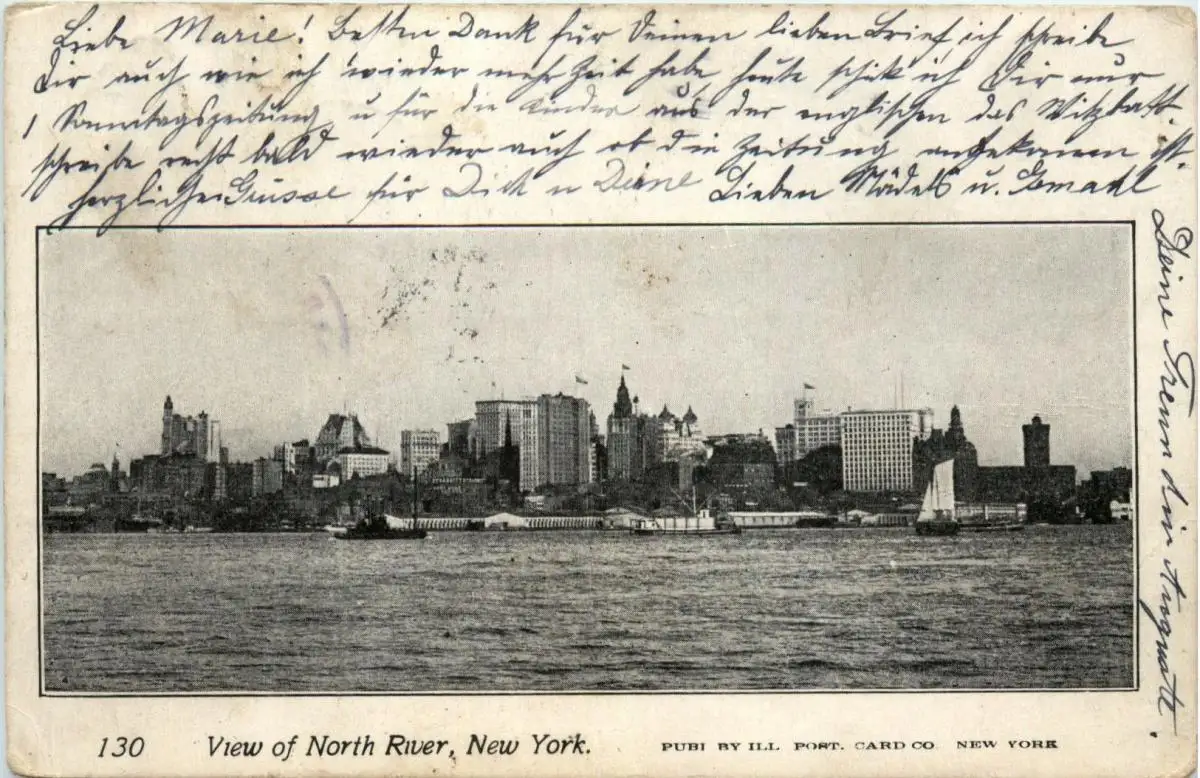 Liebe Marie! Besten Dank für Deinen lieben Brief, ich schreibe
Dir auch wie ich wieder mehr Zeit habe heute schik ich Dir nur
1 Sonntagszeitung u für die Kinder aus der englischen das Witzblatt.
schreibe recht bald wieder auch ob die Zeitung angekommen ist.
herzliche Grüsse für Dich u Deine Lieben Mädels u. Gemahl
Deine Freundin Auguste.
130 View of North River, New York. PUBI BY ILL. POST. CARD CO. NEW YORK